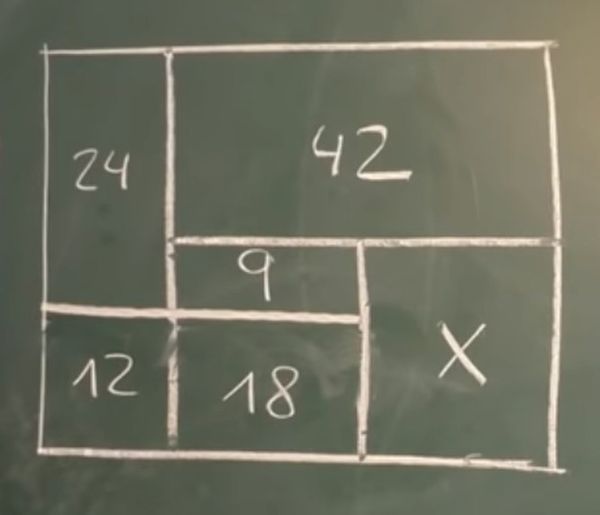 24
42
9
12
18
X